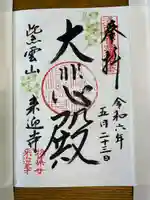 奉拝
令和六年
五月二十三日
大悲殿
紫雲山
来迎寺